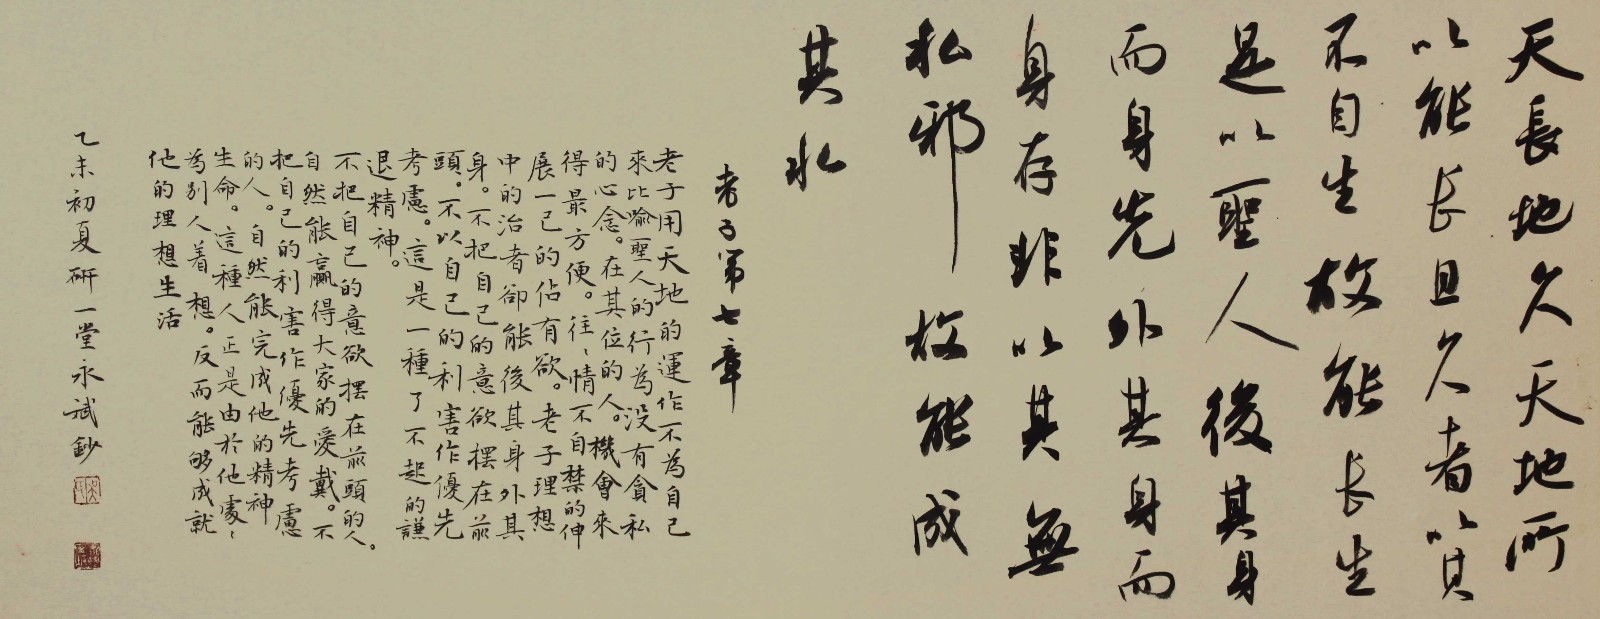 天長地久天地所
以能长且久者以其
不自生故能长生
是以聖人後其身
而身先外其身而
身存非以其無
私邪故能成
其私
老子第七章
老子用天地的運作不為自己
來比喻聖人的行為没有貪私
的心念。在其位的人。機會來
得最方便。往、情不自禁的伸
展一己的佔有欲。老子理想
中的治者卻能後其身外其
身。不把自己的意欲摆在前
頭。不以自己的利害作優先
考慮。這是一種了不起的謙
退精神。
不把自己的意欲摆在前頭的人。
自然能赢得大家的愛戴。不
把自己的利害作優先考慮
的人。自然能完成他的精神
生命。這種人正是由於他處、
為别人着想。反而能够成就
他的理想生活
乙未初夏研一堂永斌鈔